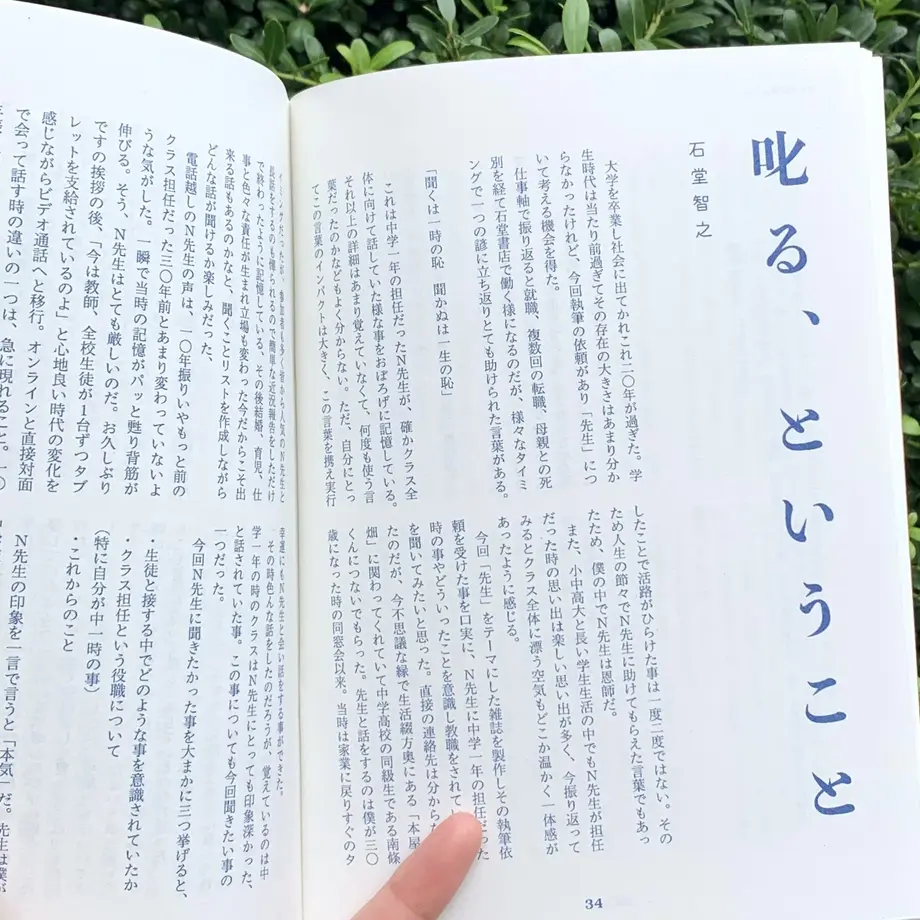 叱る、ということ
石堂智之
大学を卒業し社会に出てかれこれ二〇年が過ぎた。学
生時代は当たり前過ぎてその存在の大きさはあまり分か
らなかったけれど、今回執筆の依頼があり「先生」につ
いて考える機会を得た。
仕事軸で振り返ると就職、複数回の転職、母親との死
別を経て石堂書店で働く様になるのだが、様々なタイミ
ングで一つの諺に立ち返りとても助けられた言葉がある。
「聞くは一時の恥　聞かぬは一生の恥」
これは中学一年の担任だったN先生が、確かクラス全
体に向けて話していた様な事をおぼろげに記憶している。
それ以上の詳細はあまり覚えていなくて、何度も使う言
葉だったのかなどもよく分からない。ただ、自分にとっ
てこの言葉のインパクトは大きく、この言葉を携え実行
したことで活路がひらけた事は一度二度ではない。その
ため人生の節々でN先生に助けてもらえた言葉でもあっ
たため、僕の中でN先生は恩師だ。
また、小中高大と長い学生生活の中でもN先生が担任
だった時の思い出は楽しい思い出が多く、今振り返って
みるとクラス全体に漂う空気もどこか温かく一体感が
あったように感じる。
今回「先生」をテーマにした雑誌を製作しその執筆依
頼を受けた事を口実に、N先生に中学一年の担任だった
時の事やどういったことを意識し教職をされて
を聞いてみたいと思った。直接の連絡先は分から
たのだが、今不思議な縁で生活綴方奥にある「本屋
畑」に関わってくれていて中学高校の同級生である南條
くんにつないでもらった。先生と話をするのは僕が三〇
歳になった時の同窓会以来。当時は家業に戻りすぐのタ
イミングだったが、参加者も多く皆から人気のN先生と
長話をするのも憚られるので簡単な近況報告をしただけ
で終わったように記憶している、その後結婚、育児、仕
事と色々な責任が生まれ立場も変わった今だからこそ出
来る話もあるのかなと、聞くことリストを作成しながら
どんな話が聞けるか楽しみだった、
電話越しのN先生の声は、一〇年振りいやもっと前の
クラス担任だった三〇年前とあまり変わっていないよ
うな気がした。一瞬で当時の記憶がパッと甦り背筋が
伸びる。そう、N先生はとても厳しいのだ。お久しぶり
ですの挨拶の後、「今は教師、全校生徒が1台ずつタブ
レットを支給されているのよ」と心地良い時代の変化を
感じながらビデオ通話へと移行。オンラインと直接対面
で会って話す時の違いの一つは、急に現れること。一〇
幸運にもN先生と会い話をする事ができた。
その時色んな話をしたのだろうが、覚えているのは中
学一年の時のクラスはN先生にとっても印象深かった、
と話されていた事。この事についても今回聞きたいの事の
一つだった。
今回N先生に聞きたかった事を大まかに三つ挙げると、
・生徒と接する中でどのような事を意識されていたか
・クラス担任という役職について
（特に自分が中一時の事）
・これからのこと
N先生の印象を一言で言うと「本気」だ。先生は僕が
34